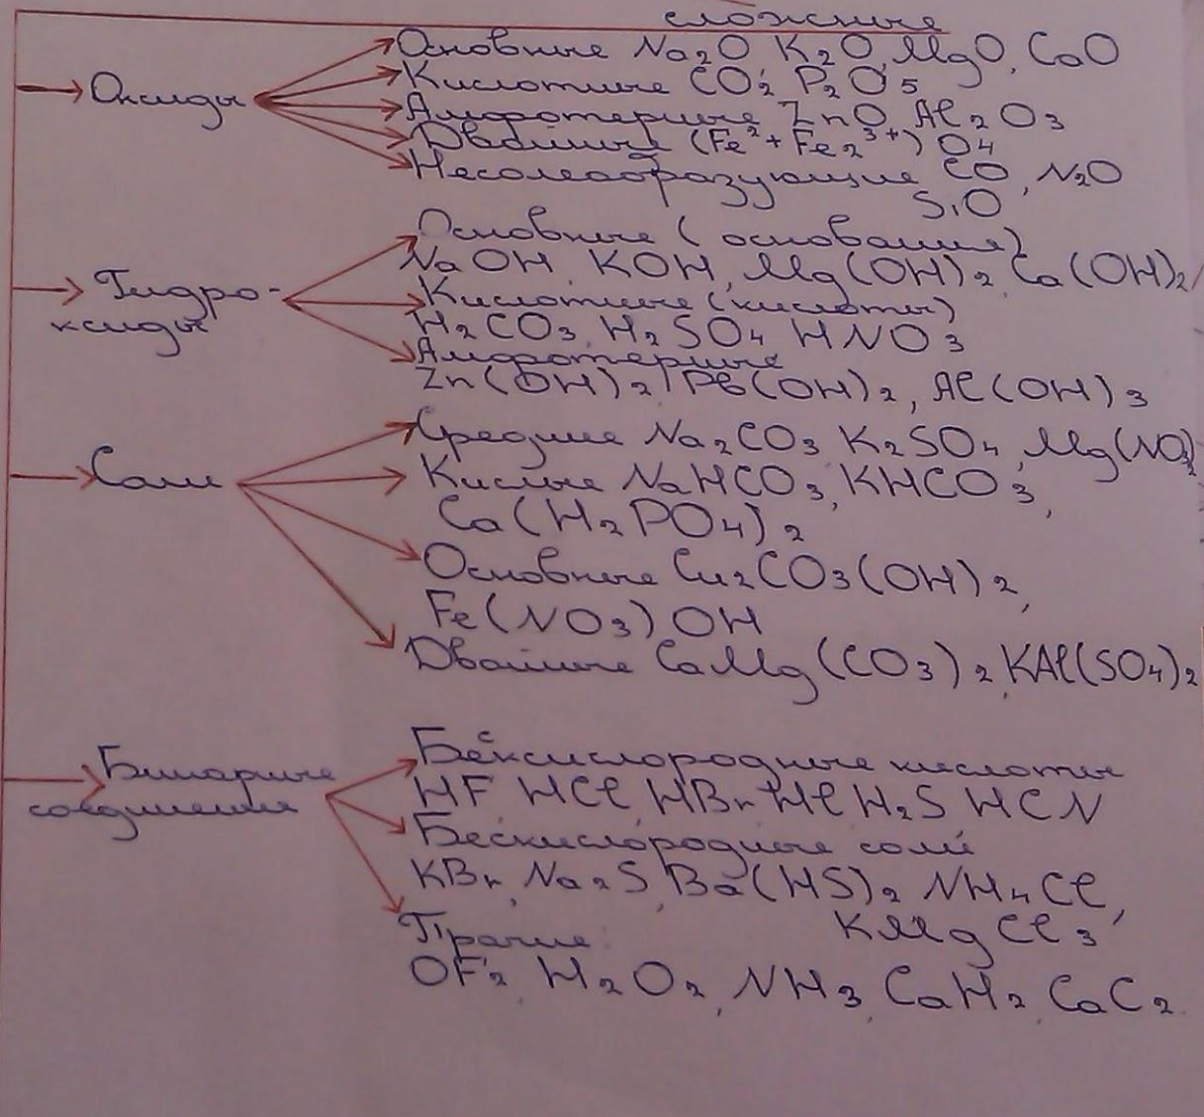 сложные
Основные Na₂O K₂O, MgO, CaO
Оксиды
Кислотные CO₂, P₂O₅
Амфотерные ZnO, Al₂O₃
Двойные (Fe²⁺Fe₂³⁺)O₄
Несолеобразующие CO, N₂O
SiO
Основные (основания)
NaOH, KOH, Mg(OH)₂, Ca(OH)₂
Гидро-
ксиды
Кислотные (кислоты)
H₂CO₃, H₂SO₄, HNO₃
Амфотерные
Zn(OH)₂, Pb(OH)₂, Al(OH)₃
Средние Na₂CO₃, K₂SO₄, Mg(NO₃)₂
Соли
Кислые NaHCO₃, KHCO₃,
Ca(H₂PO₄)₂
Основные Cu₂CO₃(OH)₂,
Fe(NO₃)OH
Двойные CaMg(CO₃)₂, KAl(SO₄)₂
Бинарные
соединения
Бескислородные кислоты
HF, HCl, HBr, HCl, H₂S, HCN
Бескислородные соли
KBr, Na₂S, Ba(HS)₂, NH₄Cl,
KMgCl₃
Прочие:
OF₂, H₂O₂, NH₃, CaH₂, CaC₂